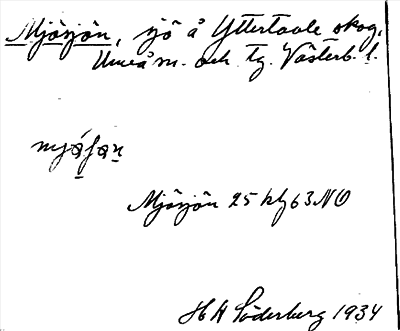 Mjösjön, sjö å Yttertavle skog,
Umeå m. och tg. Västerb. l.
Mjösjön 25 klg 63 NO
H H Söderberg 1934